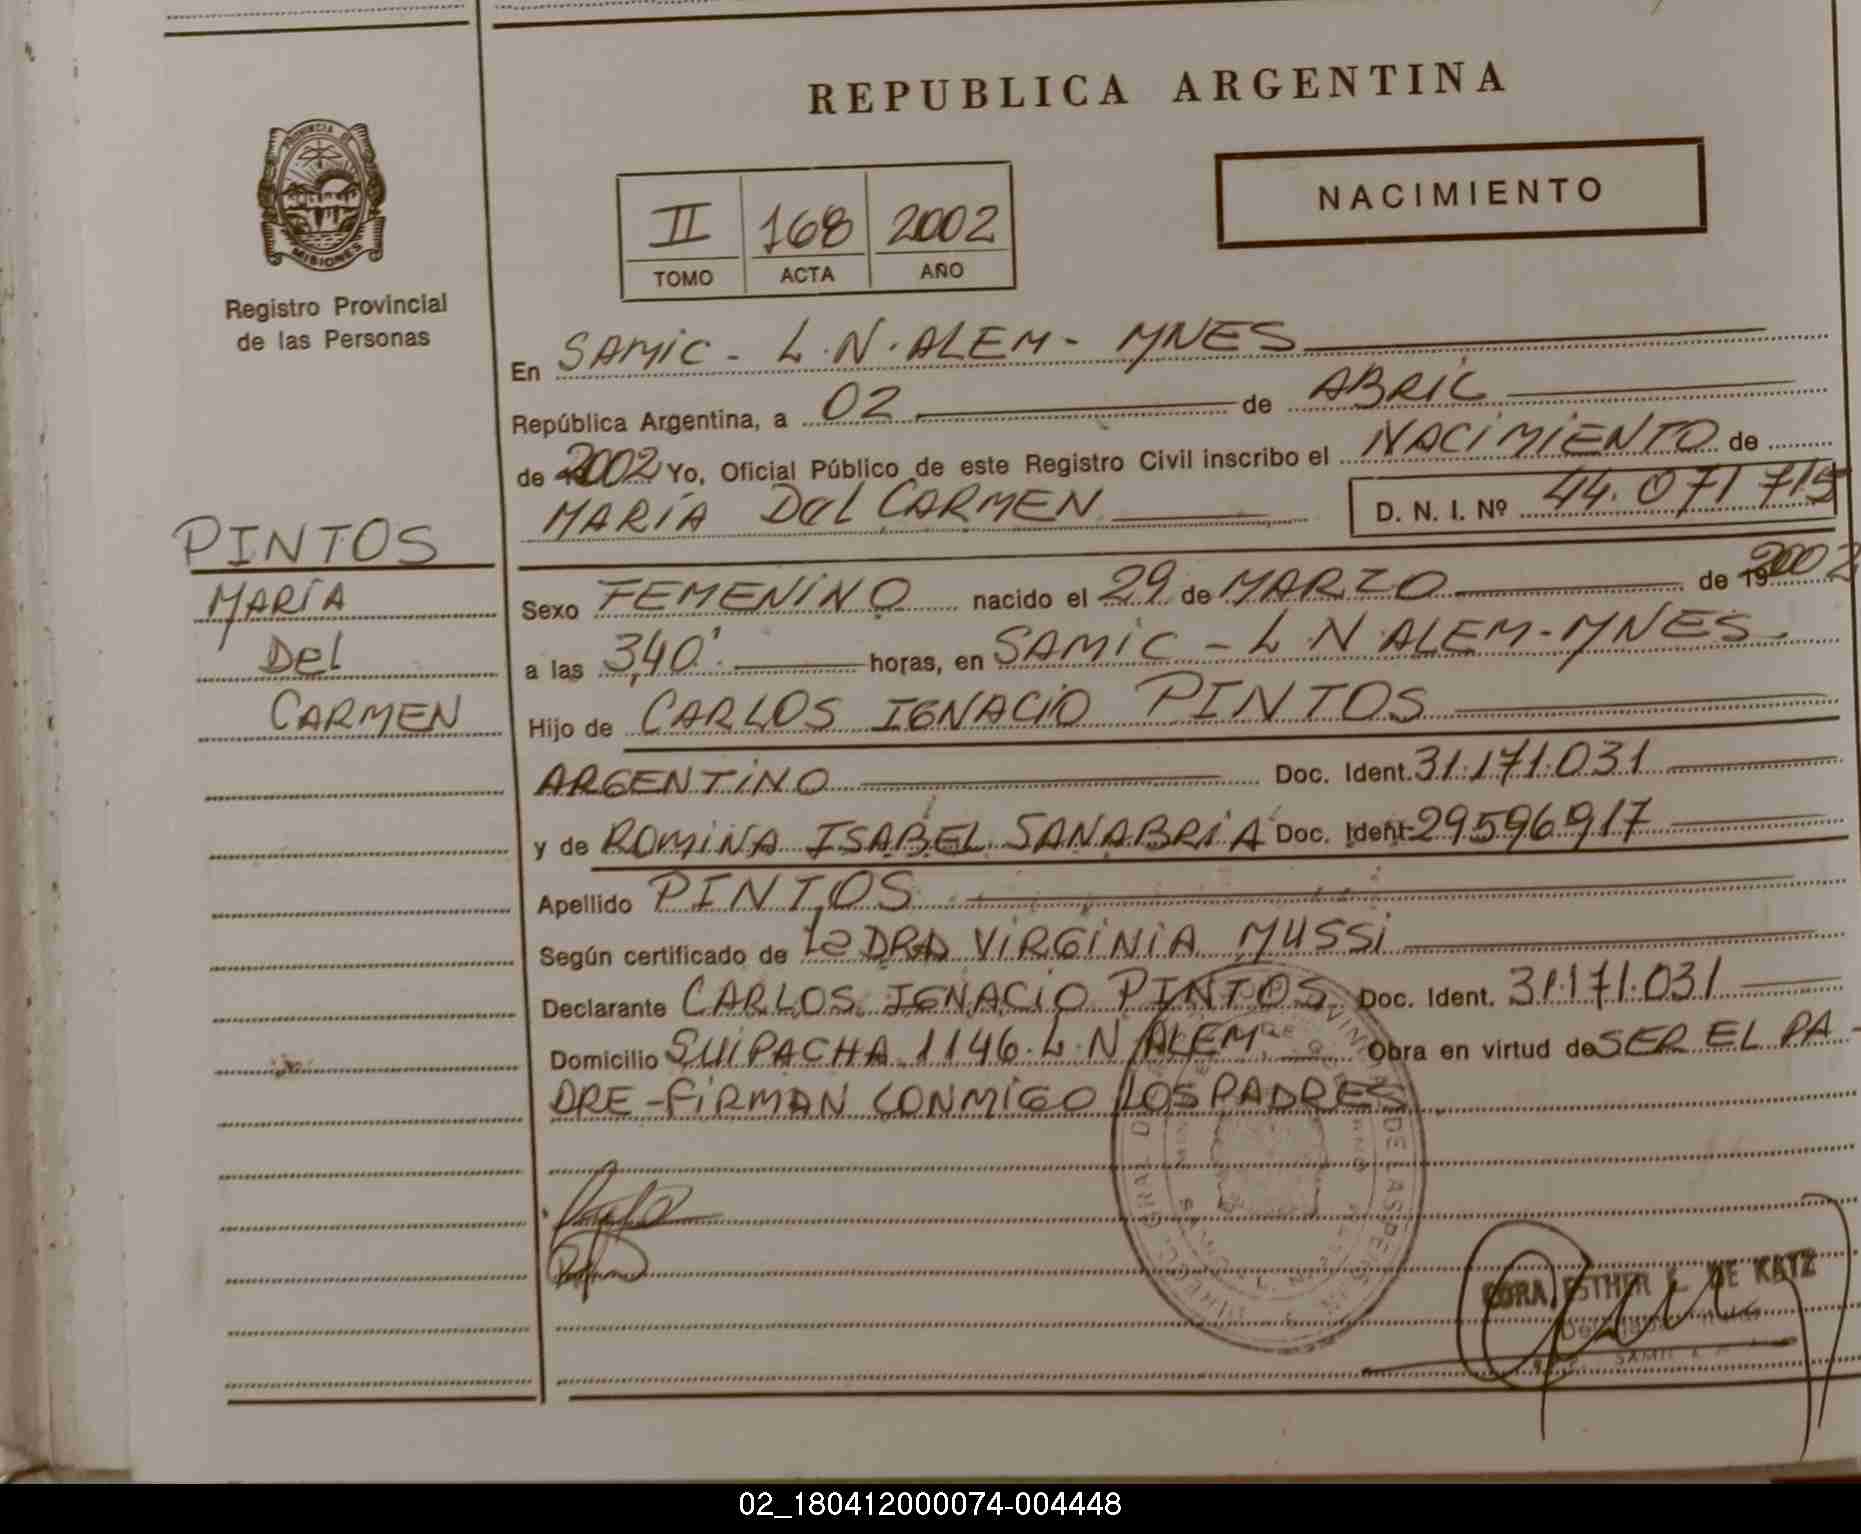 REPUBLICA ARGENTINA
NACIMIENTO
PROVINCIA DE
MISIONES
Registro Provincial
de las Personas
II 168 2002
TOMO ACTA AÑO
En SAMIC - L.N. ALEM - MNES
República Argentina, a 02 de ABRIL
de 2002 Yo, Oficial Público de este Registro Civil inscribo el NACIMIENTO de
MARÍA Del CARMEN D. N. I. Nº 44.071 715
PINTOS
MARÍA
Del
CARMEN
Sexo FEMENINO nacido el 29 de MARZO de 19 2002
a las 3,40' horas, en SAMIC - L N ALEM - MNES -
Hijo de CARLOS IGNACIO PINTOS
ARGENTINO Doc. Ident. 31.171.031
y de ROMINA ISABEL SANABRIA Doc. Ident. 29596917
Apellido PINTOS
Según certificado de la DRA VIRGINIA MUSSI
Declarante CARLOS IGNACIO PINTOS Doc. Ident. 31.171.031
Domicilio SUIPACHA 1146. L.N ALEM Obra en virtud de SER EL PA-
DRE - FIRMAN CONMIGO LOS PADRES
ESTHER E. DE KATZ
02_180412000074-004448